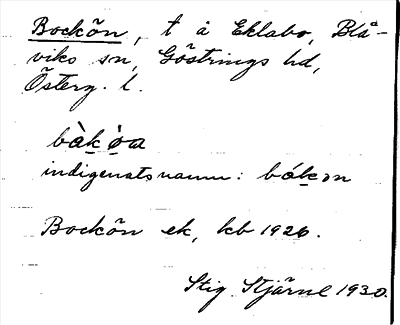 Bockön, t å Eklabo, Blå-
viks sn, Göstrings hd,
Österg. l.
bàkòa
indigenatsnamn: bókɔn
Bockön ek, kb 1926.
Stig Stjärne 1930.